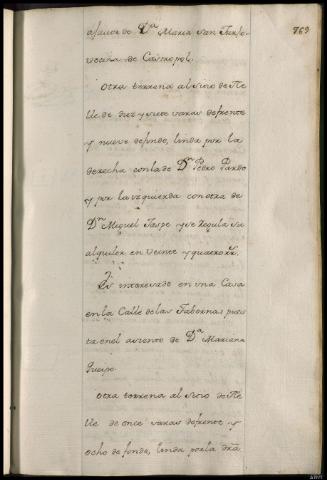 769
a favor de D.ª Maria San Jurjo
vecina de Castropol.
Otra terrena al sitio de Me
lle de diez y siete varas defrente
y nueve defondo, linda por la
derecha con la de D.n Pedro Pardo
y por la yzquierda con otra de
D.n Miguel Taspe y se regula su
alquiler en veinte y quatro rr.s
Es interesado en una Casa
en la Calle de las Tabernas pues
ta en el asiento de D.ª Mariana
Queipo.
Otra terrena al sitio de Me
lle de once varas defrente y
ocho de fondo, linda por la dra